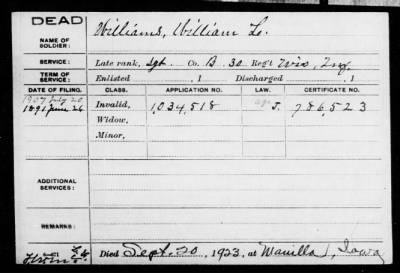 DEAD
NAME OF SOLDIER: Williams, William L.
SERVICE: Late rank, Sgt. Co. B 30 Regt Wis. Inf.
TERM OF SERVICE: Enlisted , 1 Discharged , 1
DATE OF FILING. CLASS. APPLICATION NO. LAW. CERTIFICATE NO.
1907 July 20
1891 June 26 Invalid, 1,034,518 J. 786,523
Widow,
Minor,
ADDITIONAL SERVICES:
REMARKS:
Died Sept. 20, 1923, at Manilla, Iowa